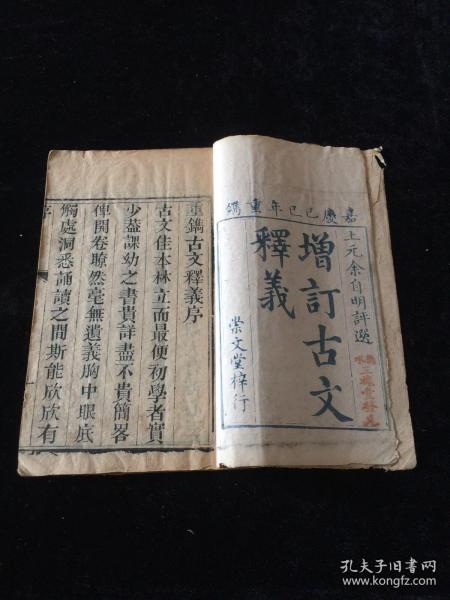 嘉慶己巳年重鐫
上元余自明評選
增訂古文
釋義
崇文堂梓行
重鐫古文釋義序
古文佳本林立而最便初學者實
少蓋課幼之書貴詳盡不貴簡畧
俾開卷瞭然毫無遺義胸中眼底
觸處洞悉誦讀之間斯能欣欣有
序
孔夫子旧书网
www.kongfz.com